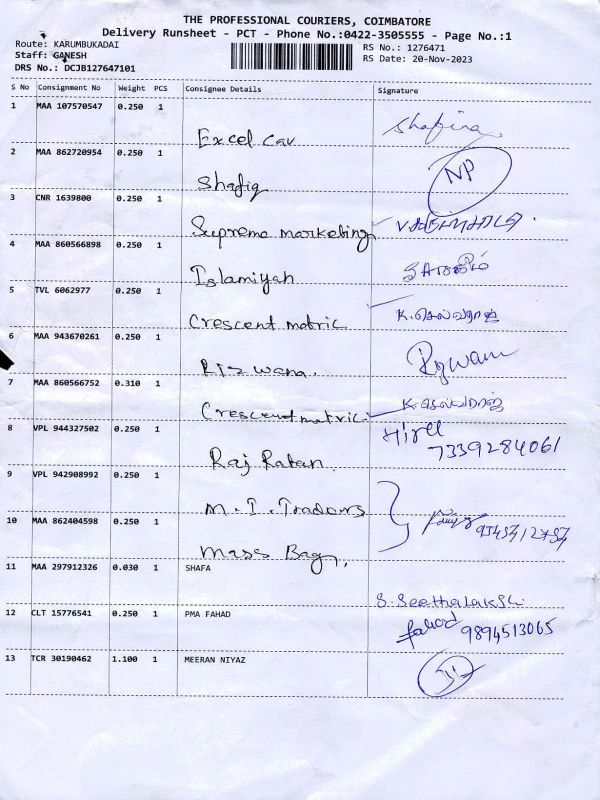 THE PROFESSIONAL COURIERS, COIMBATORE
Delivery Runsheet - PCT - Phone No.:0422-3505555 - Page No.:1
Route: KARUMBUKADAI
RS No.: 1276471
Staff: GANESH
RS Date: 20-Nov-2023
DRS No.: DCJB127647101
S No Consignment No Weight PCS Consignee Details Signature
1 MAA 107570547 0.250 1
Excel Cav
2 MAA 862720954 0.250 1
Shafiq NP
3 CNR 1639800 0.250 1
Supreme marketing
4 MAA 860566898 0.250 1
Islamiyah
5 TVL 6062977 0.250 1
Crescent matric K.செல்வராஜ்
6 MAA 943670261 0.250 1
Rizwana.
7 MAA 860566752 0.310 1
Crescent matric. K.செல்வராஜ்
8 VPL 944327502 0.250 1 7339284061
Raj Ratan
9 VPL 942908992 0.250 1
M.I. Tradors
10 MAA 862404598 0.250 1
Mass Bag.
11 MAA 297912326 0.030 1 SHAFA
12 CLT 15776541 0.250 1 PMA FAHAD fahad 9894513065
13 TCR 30190462 1.100 1 MEERAN NIYAZ